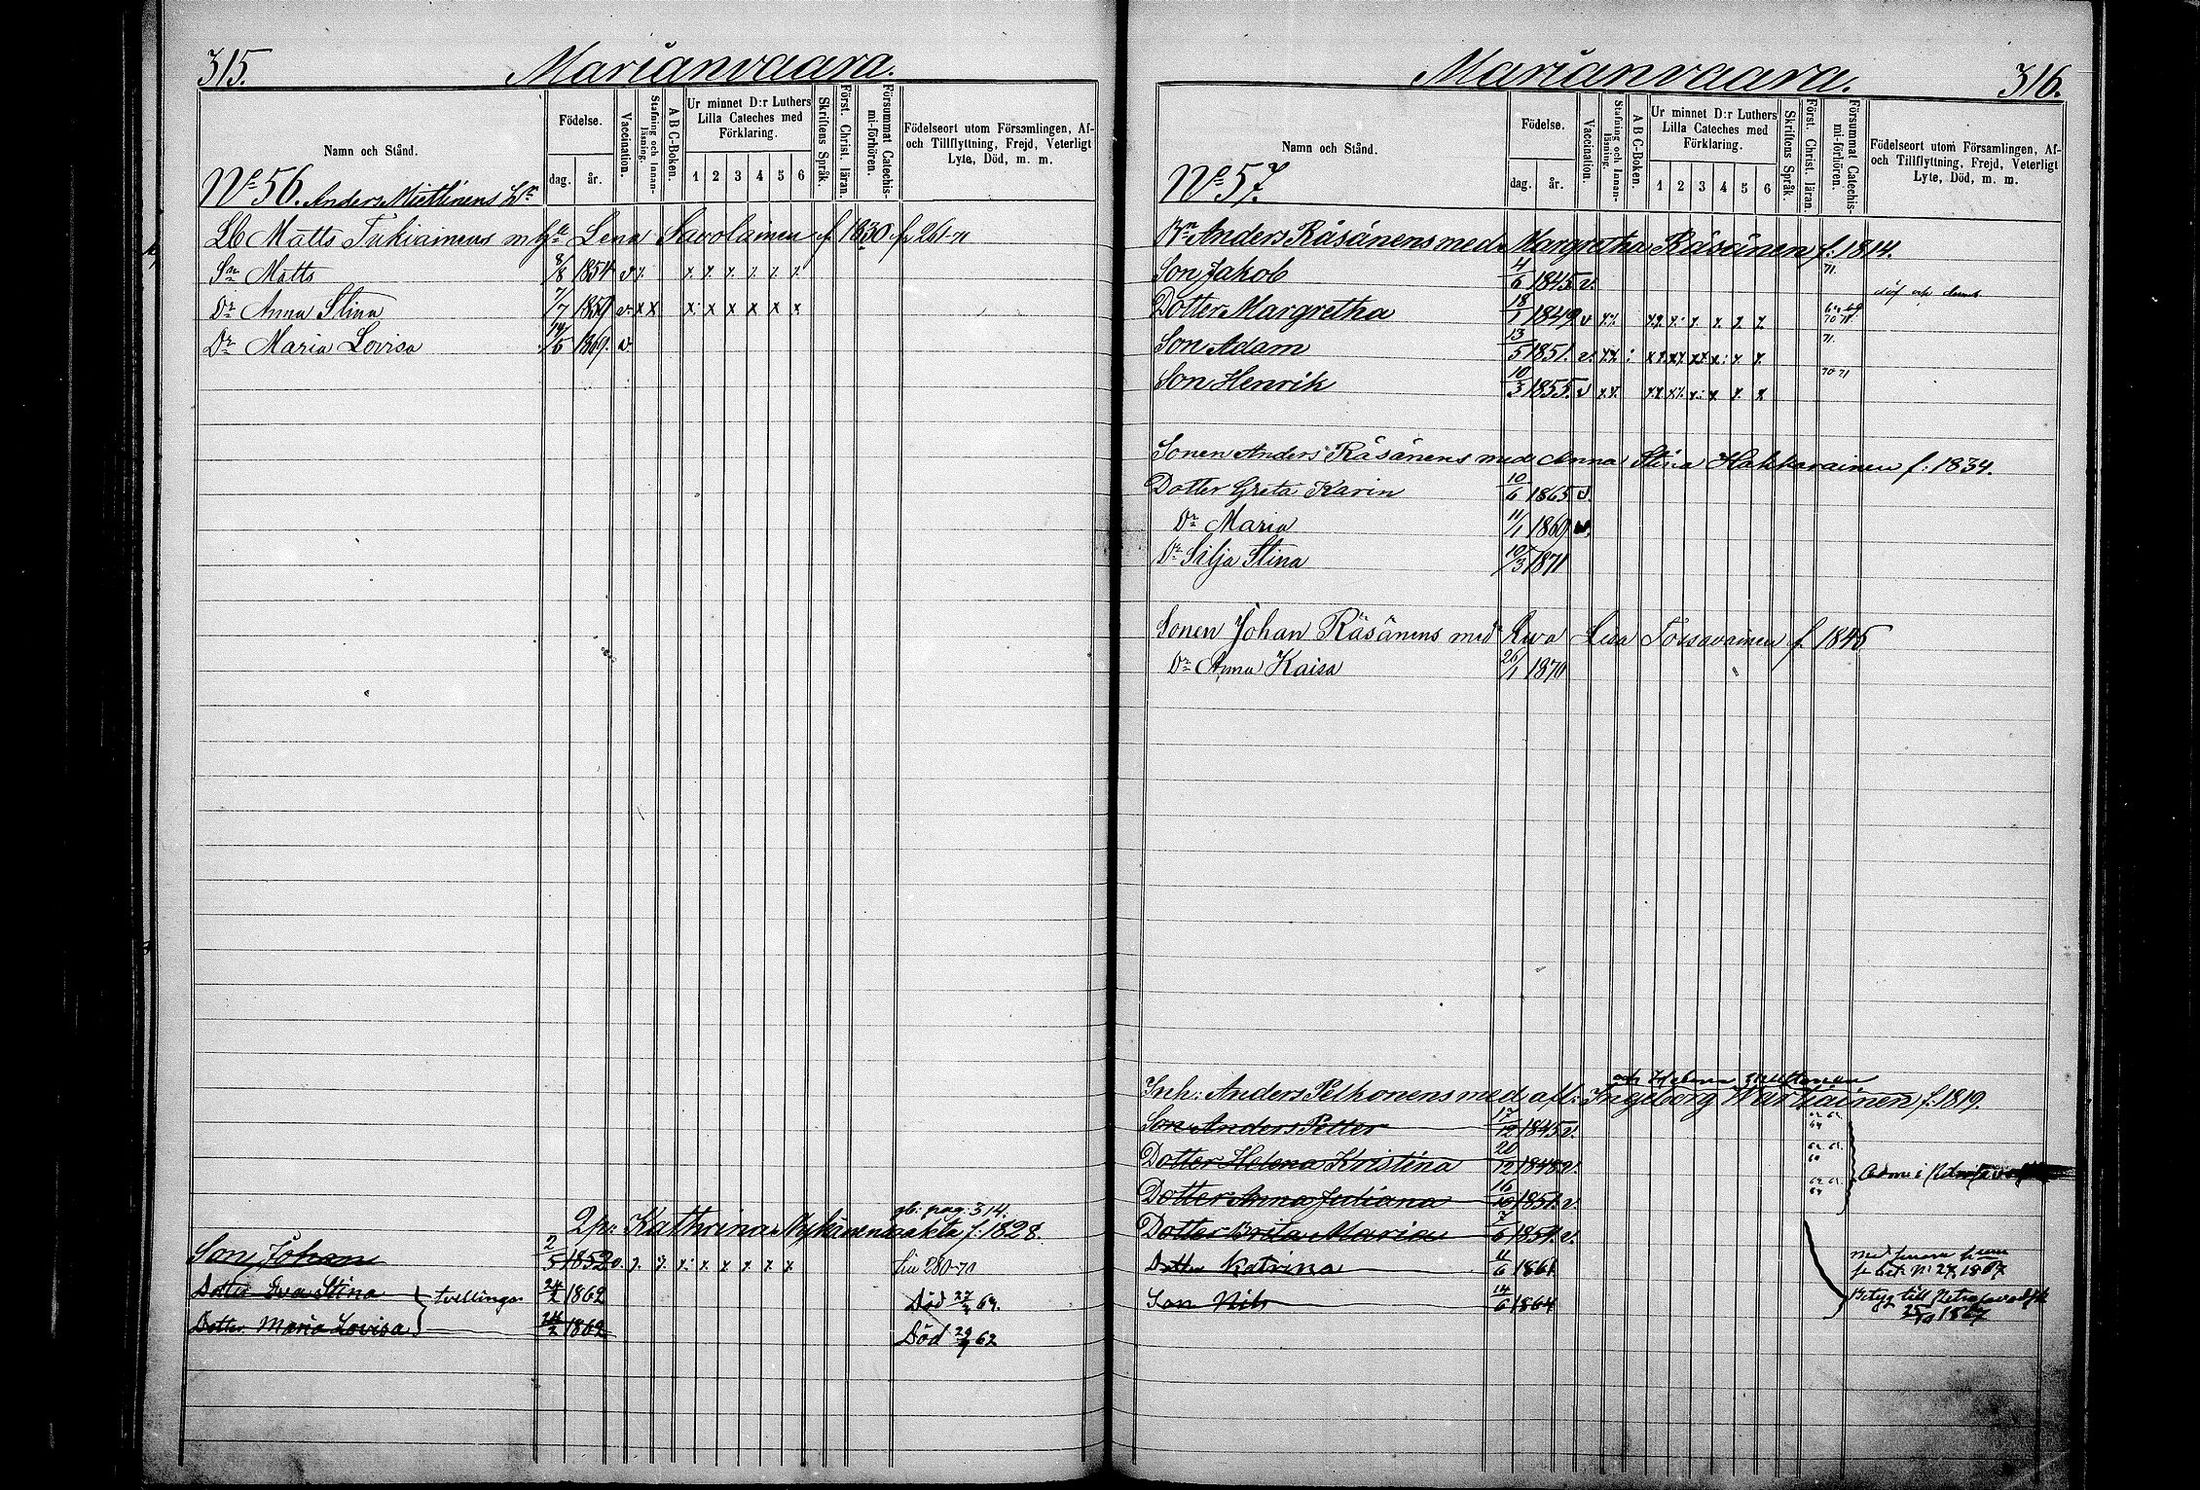 315.
Marianvaara.
Namn och Stånd.
Födelse.
dag. år.
Vaccination.
Stafning och Innanläsning.
A B C-Boken.
Ur minnet D:r Luthers
Lilla Cateches med
Förklaring.
1 2 3 4 5 6
Skriftens Språk.
Först. Christ. läran.
Försummat Catechismi-förhören.
Födelseort utom Församlingen, Af-
och Tillflyttning, Frejd, Veterligt
Lyte, Död, m. m.
No 56. Anders Miettinens
Lb Matts Tukiainens m h Lena Savolainen f 1830 fr 261-71
Sn Matts 8/8 1854 v x x x x x x x
Dr Anna Stina 7/7 1859 v x x x x x x x x
Dr Maria Lovisa 14/5 1869. v
gb: pag: 314.
2/pr Kathrina Nykänens äkta f: 1828.
Son Johan 2/5 1852 v. x x x x x x x x fr 280-70
Dotter Eva Stina 24/2 1862 Död 27/2 64.
tvillingar
Dotter Maria Lovisa 24/2 1862 Död 29/9 62
316.
Marianvaara.
Namn och Stånd.
Födelse.
dag. år.
Vaccination.
Stafning och Innanläsning.
A B C-Boken.
Ur minnet D:r Luthers
Lilla Cateches med
Förklaring.
1 2 3 4 5 6
Skriftens Språk.
Först. Christ. läran.
Försummat Catechismi-förhören.
Födelseort utom Församlingen, Af-
och Tillflyttning, Frejd, Veterligt
Lyte, Död, m. m.
No 57.
Bn Anders Räsänens med Margretha Räsänen f: 1814.
Son Jakob 4/6 1845 v. 71.
döf och dumb
Dotter Margretha 18/1 1849 v x x x x x x x x 70 71
Son Adam 13/5 1851. v. x x x x x x x x 71.
Son Henrik 10/3 1855. v x x x x x x x x 70 71
Sonen Anders Räsänens med Anna Stina Hakkarainen f: 1834.
Dotter Greta Karin 10/6 1865 v.
Dr Maria 11/1 1869 v.
Dr Silja Stina 10/3 1871
Sonen Johan Räsänens med Ewa Lisa Tossavainen f 1845
Dr Anna Kaisa 26/1 1870
och Helena
Inh: Anders Pelkonens med afl: Ingeborg Wartiainen f: 1819.
Son Anders Petter 17/12 1845 v.
Dotter Helena Kristina 20/12 1848 v.
Dotter Anna Juliana 16/10 1851. v.
Dotter Brita Maria 7/6 1854. v.
Dotter Katrina 11/6 1861
med
fr bet: N: 27, 1867
Son Nils 14/6 1864
Betyg till Petrosavodsk
25/10 1867